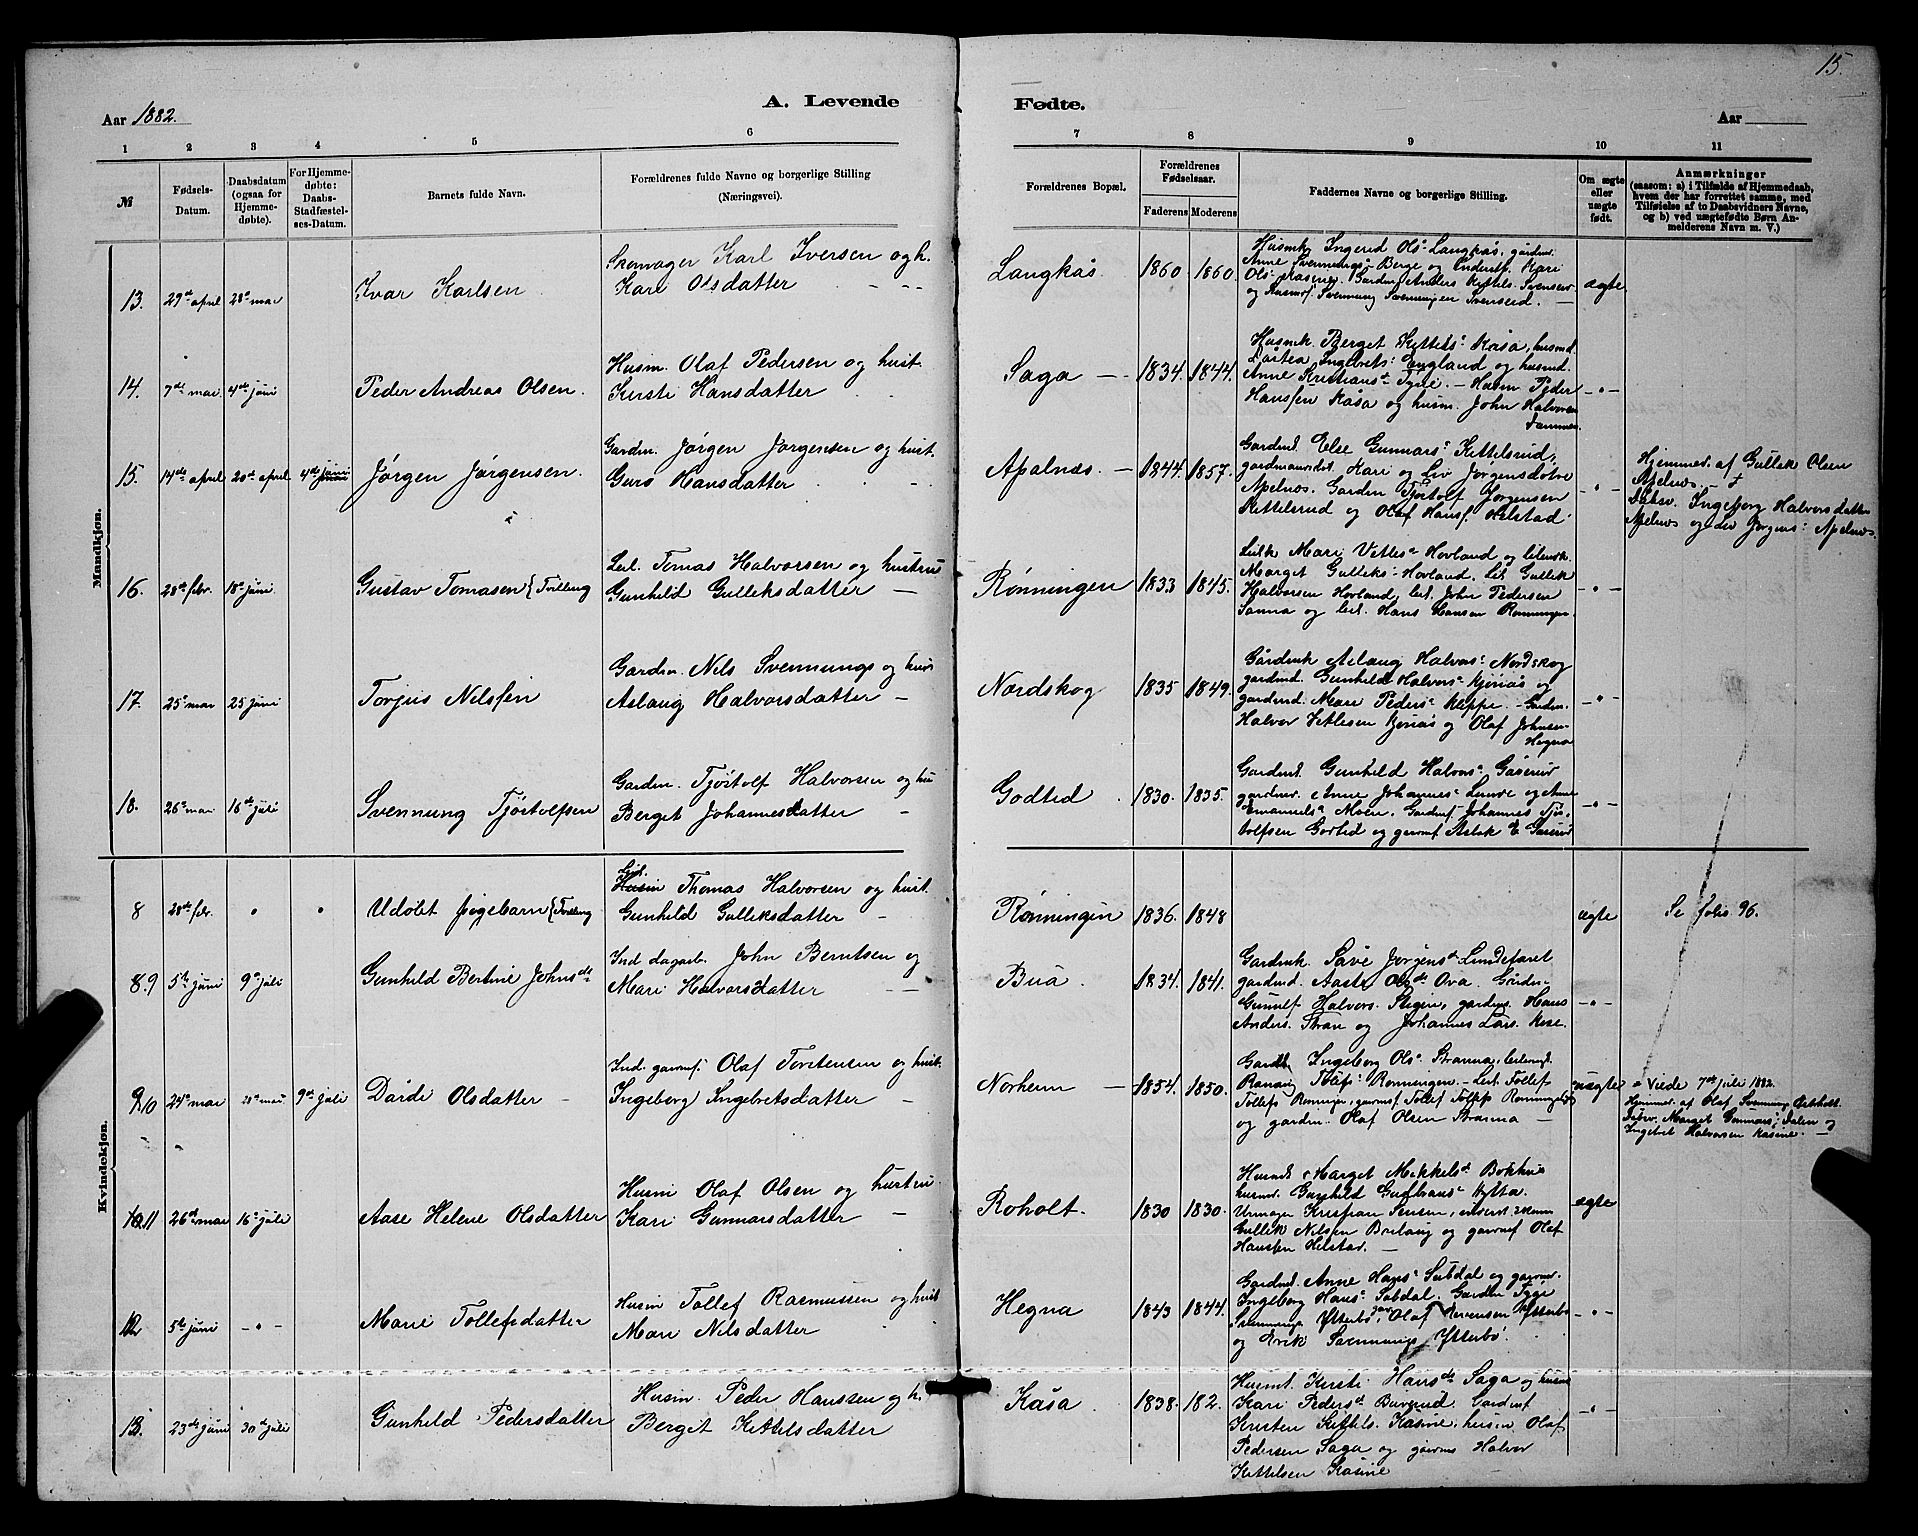 15.
A. Levende Fødte.
Aar 1882. Aar
1 2 3 4 5 6 7 8 9 10 11
№ Fødsels-Datum. Daabsdatum (ogsaa for Hjemmedøbte). For Hjemmedøbte: Daabs-Stadfæstelses-Datum. Barnets fulde Navn. Forældrenes fulde Navne og borgerlige Stilling (Næringsvei). Forældrenes Bopæl. Forældrenes Fødselsaar. Faderens Moderens Faddernes Navne og borgerlige Stilling. Om ægte eller uægte født. Anmærkninger (saasom: a) i Tilfælde af Hjemmedaab, hvem der har forrettet samme, med Tilføielse af to Daabsvidners Navne, og b) ved uægtefødte Børn Anmelderens Navn m. V.)
Mandkjøn.
13. 29de april 28de mai Ivar Karlsen Skomager Karl Iversen og h.
Kari Olsdatter Langkås 1860 1860
Husmk Ingerid Ols: Langkås, gårdm.
Anne Svennungs: Berge og
Ols: Kasene. Gårdm Anders Kittels. Svenseid
og Svennung Svenningsen Svenseid. ægte
14. 7de mai 4de juni Peder Andreas Olsen. Husm. Olaf Pedersen og hust.
Kirsti Hansdatter Saga 1834. 1844.
Husmk. Berget Kittels: Kåsa, husmd.
Dårtea Ingebrets: England og husmd.
Anne Kristians: Tyrie. – Husm Peder
Hanssen Kasa og husm. John Halvorsen
15. 14de april 20de april 4de juni Jørgen Jørgensen. Gardm. Jørgen Jørgensen og hust.
Guro Hansdatter Apalnæs. 1844. 1857.
Gardmd. Else Gunnars: Kittelsrud,
Kari og Liv Jørgensdøtre
Apelnes. Gardm Tjøstolf Jørgensen
Kittelsrud og Olaf Hans. Helstad
Hjemmed. af Gullek Olsen
Apelnes. †
Dåbsv. Ingeborg Halvorsdatter
Apelnes og Liv Jørgens: Apelnes.
16. 28de febr. 18de juni Gustav Tomasen {Tvilling Leil. Tomas Halvorsen og hustru
Gunhild Gulleksdatter Rønningen 1833 1845.
Leilk Mari Vetles: Hovland og leilmk.
Marget Gulleks: Hovland. Leil Gullek
Halvorsen Hovland, leil. John Pedersen
Sanna og leil. Hans Hansen Rønningen
17. 25de mai 25 juni Torjus Nilssen Gardm. Nils Svennungs og hust
Aslaug Halvorsdatter Nordskog 1835 1849.
Gårdmk Aslaug Halvors: Nordskog
gardmd. Gunhild Halvors: Kjeriås og
gardmd. Mari Peders: Kleppe. – Gardm.
Halvor Vetlesen Kjeriås og Olaf Johnsen
Hegna
18. 26de mai 16de juli Svennung Tjøstolfsen Gardm. Tjøstolf Halvorsen og hu
Berget Johannesdatter Godtid 1830. 1835.
Gardmd. Gunhild Halvors:
gardmdr. Anne Johannes: Lunde og Anne
Emanuels: Moen. Gardmf. Johannes Tjøstolfsen
Godtid og gårdmf. Aslak E.
Kvindekjøn.
8 28de febr. Udøbt pigebarn {Tvilling Leil. Husm Thomas Halvorsen og hust.
Gunhild Gulleksdatter Rønningen 1836. 1848 ægte Se folio 96.
8.9 5te juni 9de juli Gunhild Bertine Johnsdt Ind dagarb. John Berntsen og
Mari Halvorsdatter Bua 1834. 1841.
Gardmk. Save Jørgensdt Lindefaret
gardmd. Aaste Olsdt Ova. Gårdm
Gunulf Halvors. Stigen, gardms. Hans
Anders. Stran og Johannes Lars. Kise.
9.10 24de mai 28de mai 9de juli Dårde Olsdatter Ind. garmf. Olaf Torstensen og hust.
Ingeborg Ingebretsdatter Norheim 1854. 1850.
Ingeborg Ols: Stranna,
Ranaug Tolefs: Rønningen. – Leil. Tollef
Tollefs Rønningen, garmf Tollef Tollefs Rønningen
og gardm. Olaf Olsen Stranna uægte
Viede 7de juli 1882.
Hjemmed. af Olaf Svennungs Østholt.
Dåbsv. Marget Gunnars: Dalen og
Ingebret Halvorsen Kasine.
10.11 26de mai 16de juli Aase Helene Olsdatter Husm Olaf Olsen og hustru
Kari Gunnarsdatter Roholt. 1830 1830.
Husmd. Marget Mikkelsdt
husmd. Gunhild Gulbrans: Hytta.
Urmager Kristian
Gullek Nilsen Breiaug og garmf Olaf
Hanssen Helstad. ægte
12 5te juni Marie Tollefsdatter Husm Tollef Rasmussen og hust
Mari Nilsdatter Hegna 1843 1844.
Gardmd. Anne Hans: Subdal og garmd.
Ingeborg Hans: Subdal. Gardm Tyge
Svennungs Ytterbø, Olaf
og Erik Svennungs Ytterbø
13. 23de juni 30te juli Gunhild Pedersdatter Husm. Peder Hanssen og h.
Berget Kittelsdatter Kåsa 1838. 182.
Husmk. Kirsti Hansdt Saga og husm
Kari Pedersdt Gardmf
Kristen Kittels. Kasine, husm Olaf
Pedersen Saga og garms Halvor
Kittelsen Kasine